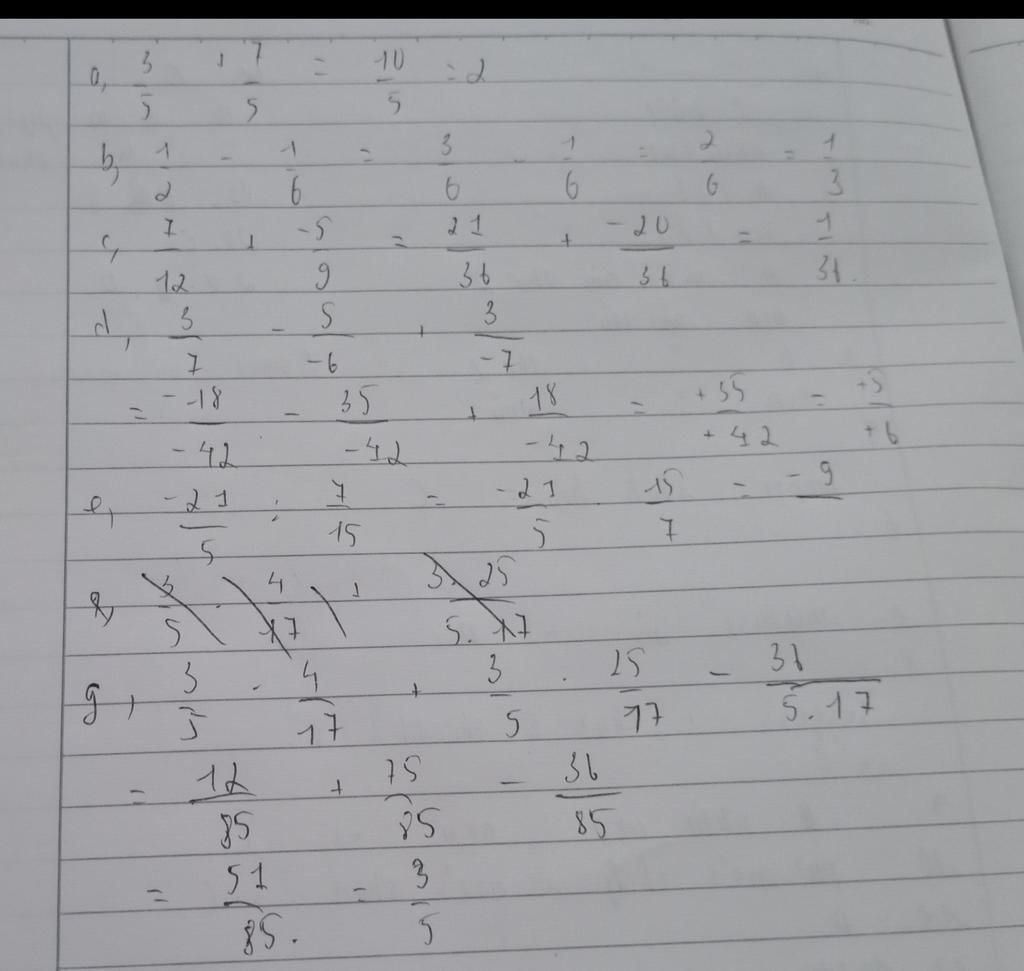 a, 3/5 + 7/5 = 10/5 = 2
b, 1/2 - 1/6 = 3/6 - 1/6 = 2/6 = 1/3
c, 7/12 + -5/9 = 21/36 + -20/36 = 1/36.
d, 3/7 - 5/-6 + 3/-7
= -18/-42 - 35/-42 + 18/-42 = +35/+42 = +5/+6
e, -21/5 : 7/15 = -21/5 . 15/7 = -9
g, 3/5 . 4/17 + 3. 25/5. 17
g, 3/5 . 4/17 + 3/5 . 25/17 - 36/5.17
= 12/85 + 75/85 - 36/85
= 51/85. = 3/5